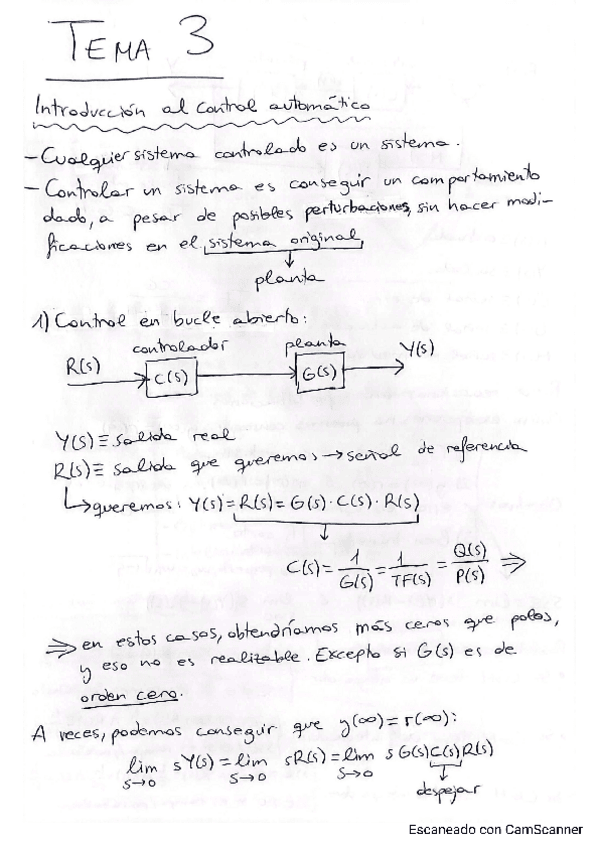 TEMA 3
Introducción al control automático
- Cualquier sistema controlado es un sistema.
- Controlar un sistema es conseguir un comportamiento
dado, a pesar de posibles perturbaciones, sin hacer modi-
ficaciones en el sistema original,
planta
1) Control en bucle abierto:
controlador planta
R(s) C(s) G(s) Y(s)
Y(s) ≡ salida real
R(s) ≡ salida que queremos → señal de referencia
↳ queremos: Y(s) = R(s) = G(s) · C(s) · R(s)
C(s) = 1/G(s) = 1/TF(s) = Q(s)/P(s) ⇒
⇒ en estos casos, obtendríamos más ceros que polos,
y eso no es realizable. Excepto si G(s) es de
orden cero.
A veces, podemos conseguir que y(∞) = r(∞):
lim s→0 sY(s) = lim s→0 sR(s) = lim s→0 s G(s) C(s) R(s)
despejar
Escaneado con CamScanner